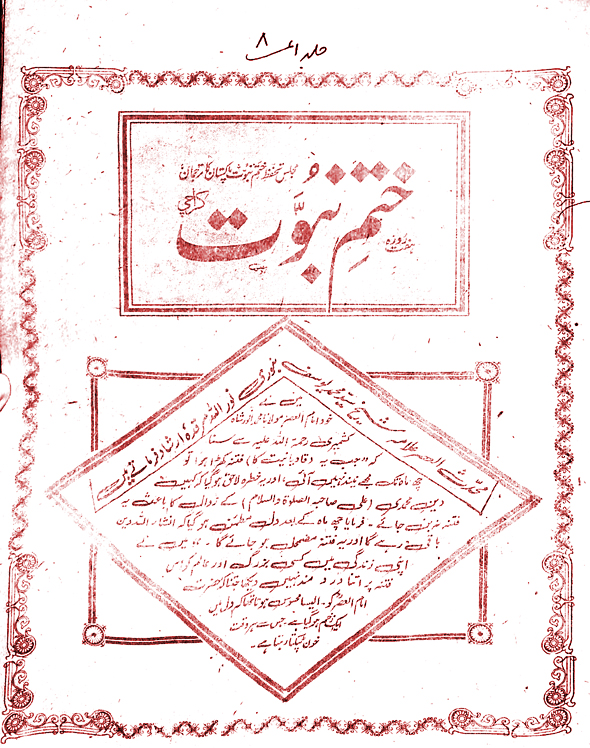 جلد ۸
مجلس تحفظ ختم نبوت پاکستان کا ترجمان
ہفت روزہ
ختمِ نبوّت
کراچی
محدث العصر علامہ سید محمد یوسف بنوری نور اللہ مرقدہ ارشاد فرماتے ہیں
میں نے
خود امام العصر مولانا محمد انور شاہ
کشمیری رحمۃ اللہ علیہ سے سنا
کہ "جب یہ (قادیانیت کا) فتنہ کھڑا ہوا تو
چھ ماہ تک مجھے نیند نہیں آئی اور یہ خطرہ لاحق ہو گیا کہ کہیں
دین محمدی (علی صاحبہ الصلوٰۃ والسلام) کے زوال کا باعث یہ
فتنہ نہ بن جائے۔ فرمایا چھ ماہ کے بعد دل مطمئن ہو گیا کہ انشاء اللہ دین
باقی رہے گا اور یہ فتنہ مضمحل ہو جائے گا۔" میں نے
اپنی زندگی میں کسی بزرگ اور عالم کو اس
فتنہ پر اتنا درد مند نہیں دیکھا جتنا کہ حضرت
امام العصر کو۔ ایسا محسوس ہوتا تھا کہ دل میں
ایک زخم ہو گیا ہے۔ جس سے ہر وقت
خون ٹپکتا رہتا ہے۔